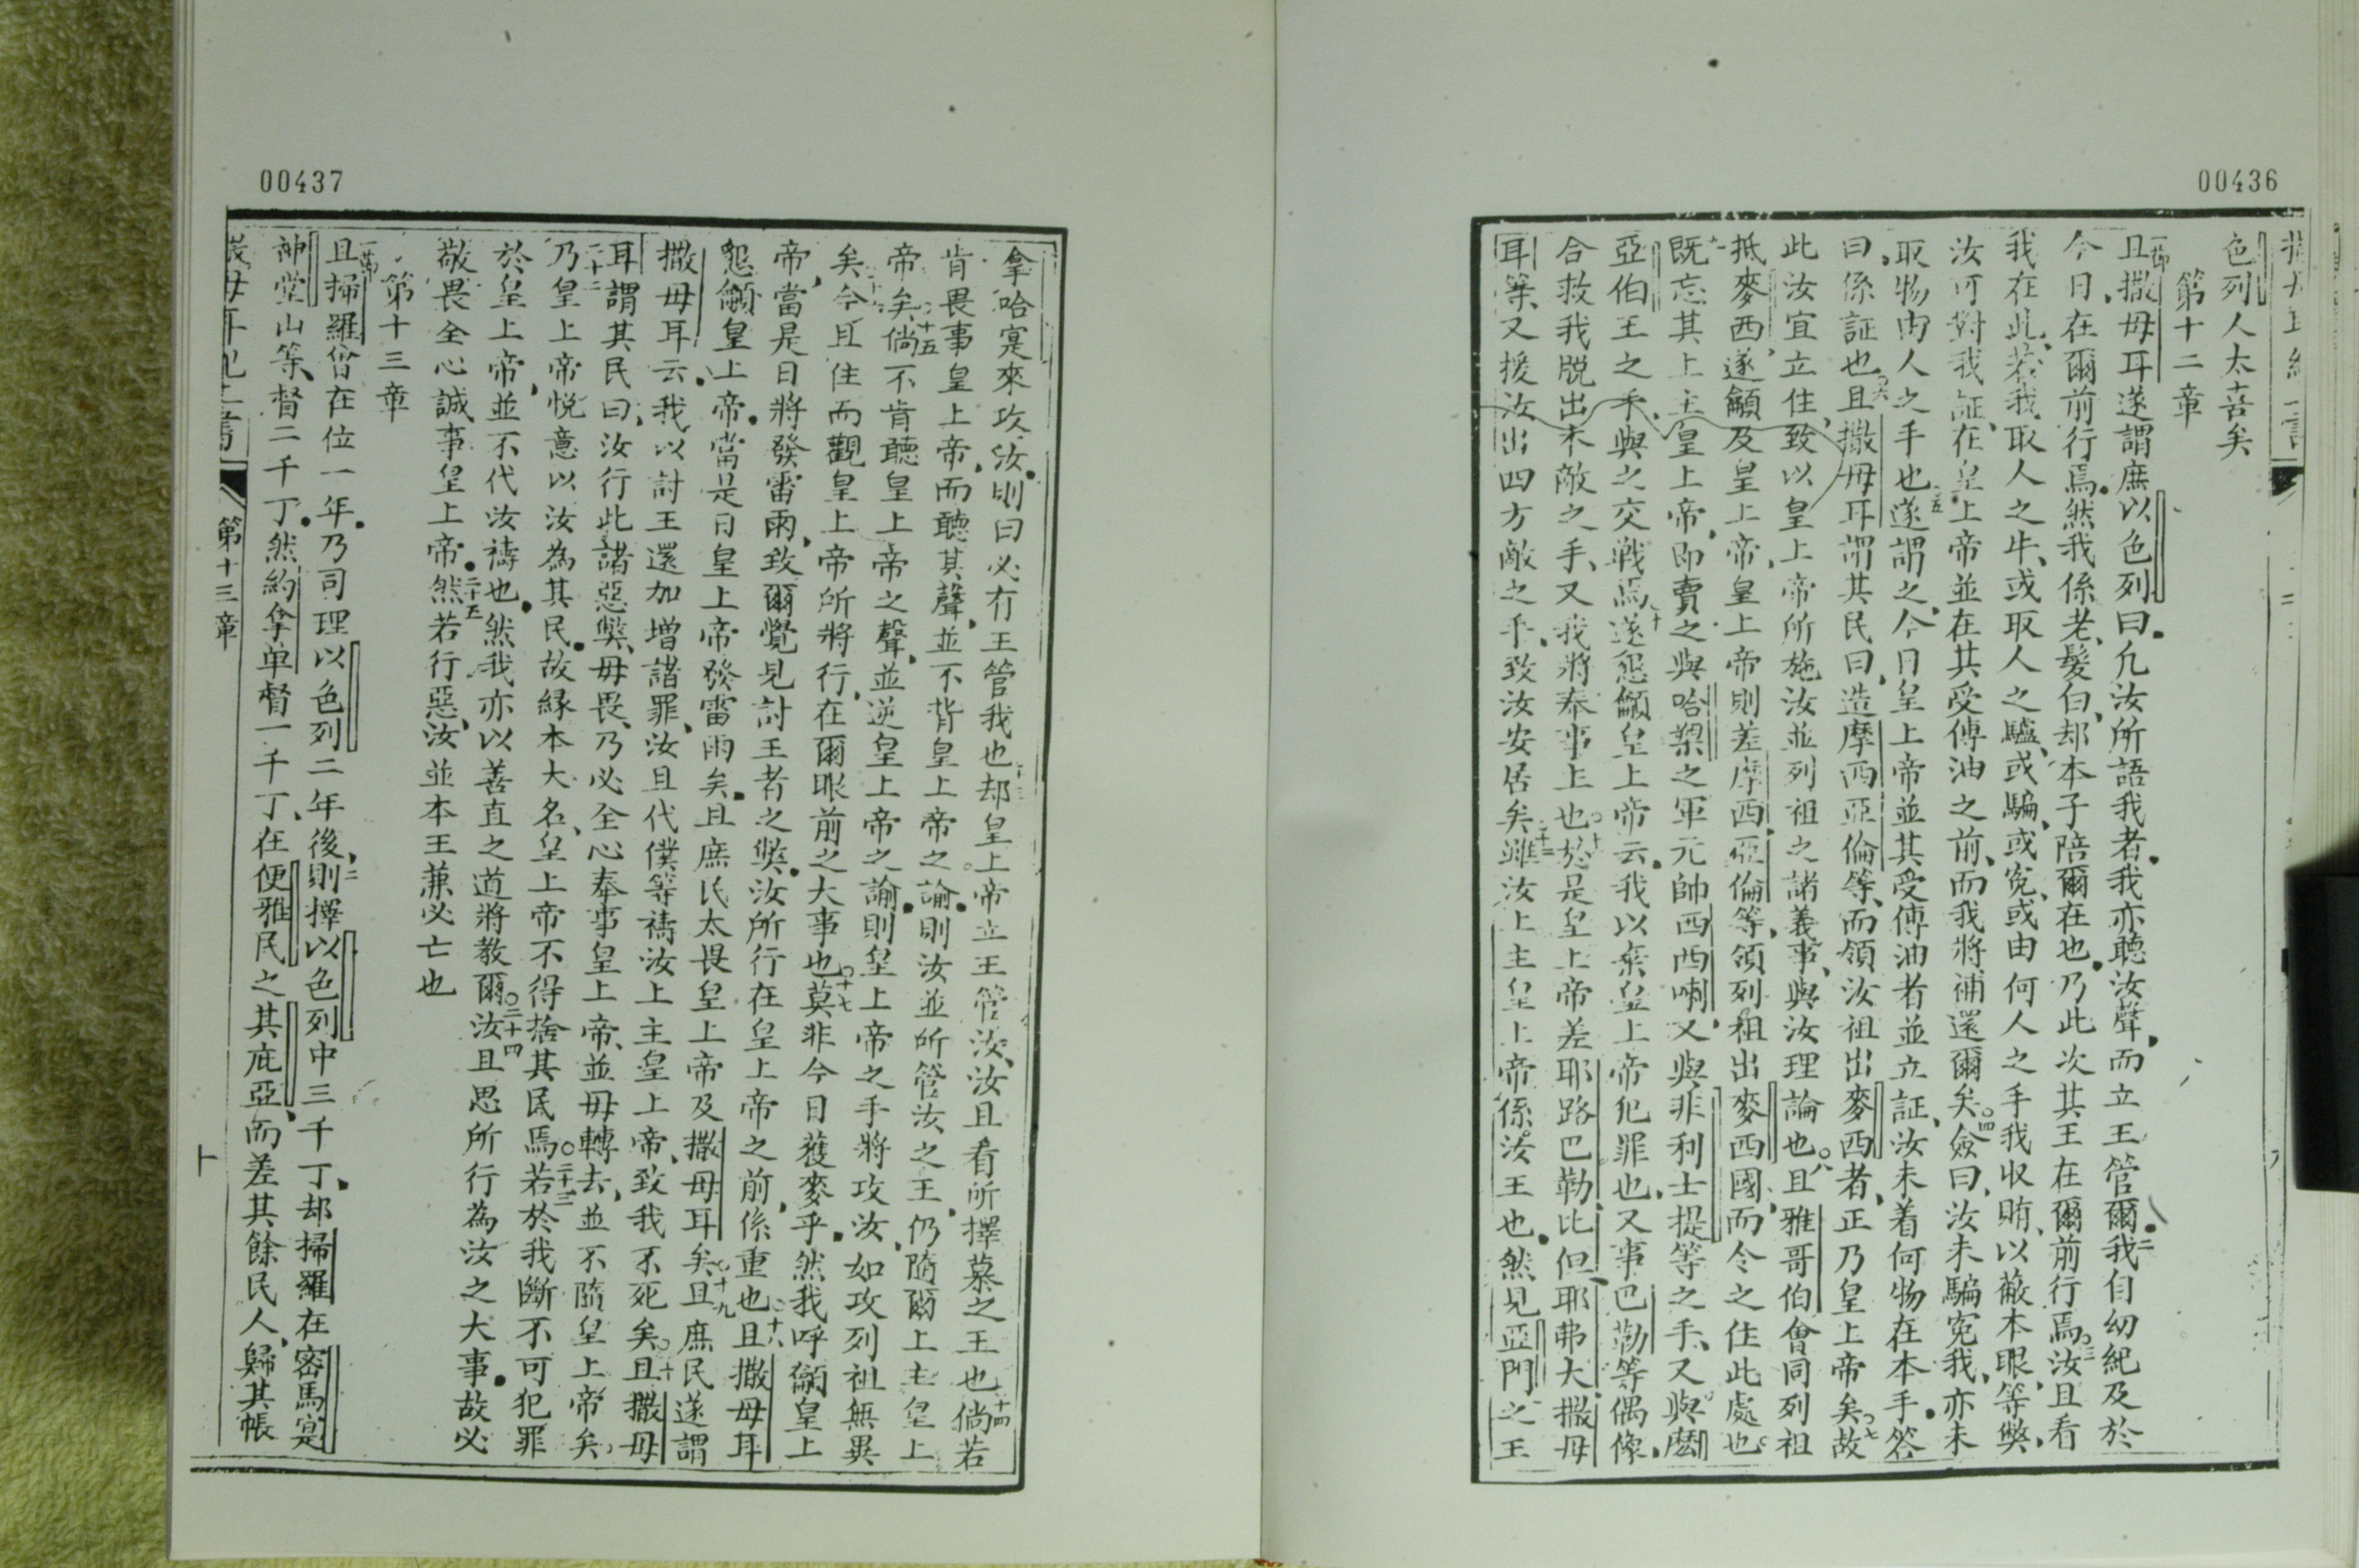 00436
色列人太喜矣
第十二章
一節且撒母耳遂謂庶以色列曰凢汝所語我者我亦聽汝聲而立王管爾二我自幼紀及於
今日在爾前行焉然我係老髮白却本子陪爾在也乃此次其王在爾前行焉○三汝且看
我在此若我取人之牛或取人之驢或騙或寃或由何人之手我収賄以蔽本眼等獘
汝可對我証在皇上帝並在其受傅油之前而我將補還爾矣○四僉曰汝未騙寃我亦未
取物由人之手也○五遂謂之今日皇上帝並其受傅油者並立証汝未着何物在本手答
曰係証也○六且撒母耳謂其民曰造摩西亞倫等而領汝祖出麥西者正乃皇上帝矣○七故
此汝宜立住致以皇上帝所施汝並列祖之諸義事與汝理論也○八且雅哥伯會同列祖
抵麥西遂籲及皇上帝皇上帝則差摩西亞倫等領列祖出麥西國而令之住此處也○
既忘其上主皇上帝即賣之與哈槊之軍元帥西西喇又與非利士提等之手又與麽
亞伯王之手與之交戰焉○十遂懇籲皇上帝云我以棄皇上帝犯罪也又事巴勒等偶像
合救我脱出本敵之手又我將奉事上也○十於是皇上帝差耶路巴勒比但耶弗大撒母
耳等又援汝出四方敵之手致汝安居矣○十二雖汝上主皇上帝係汝王也然見亞門之王
00437
拿哈寔來攻汝則曰必冇王管我也○十三却皇上帝立王管汝汝且看所擇慕之王也○十四倘若
肯畏事皇上帝而聽其聲並不背皇上帝之諭則汝並所管汝之王仍隨爾上主皇上
帝矣○十五倘不肯聽皇上帝之聲並逆皇上帝之諭則皇上帝之手將攻汝如攻列祖無異
矣○十六今且住而觀皇上帝所將行在爾眼前之大事也○十七莫非今日蓷麥乎然我呼籲皇上
帝當是日將發雷雨致爾覺見討王者之獘汝所行在皇上帝之前係重也○十八且撒母耳
懇籲皇上帝當是日皇上帝發雷雨矣且庶民太畏皇上帝及撒母耳矣○十九且庶民遂謂
撒母耳云我以討王還加增諸罪汝且代僕等禱汝上主皇上帝致我不死矣○二十且撒母
耳謂其民曰汝行此諸惡獘毋畏乃必全心奉事皇上帝並毋轉去並不隨皇上帝矣
二十二乃皇上帝悦意以汝為其民故縁本大名皇上帝不得捨其民焉○二十三若於我斷不可犯罪
於皇上帝並不代汝禱也然我亦以善直之道將教爾○二十四汝且思所行為汝之大事故必
敬畏全心誠事皇上帝○二十五然若行惡汝並本王兼必亡也
第十三章
一節且掃羅曾在位一年乃司理以色列二年後二則擇以色列中三千丁却掃羅在密馬寔
神堂山等督二千丁然約拿单督一千丁在便雅民之其庇亞而差其餘民人歸其帳
第十三章